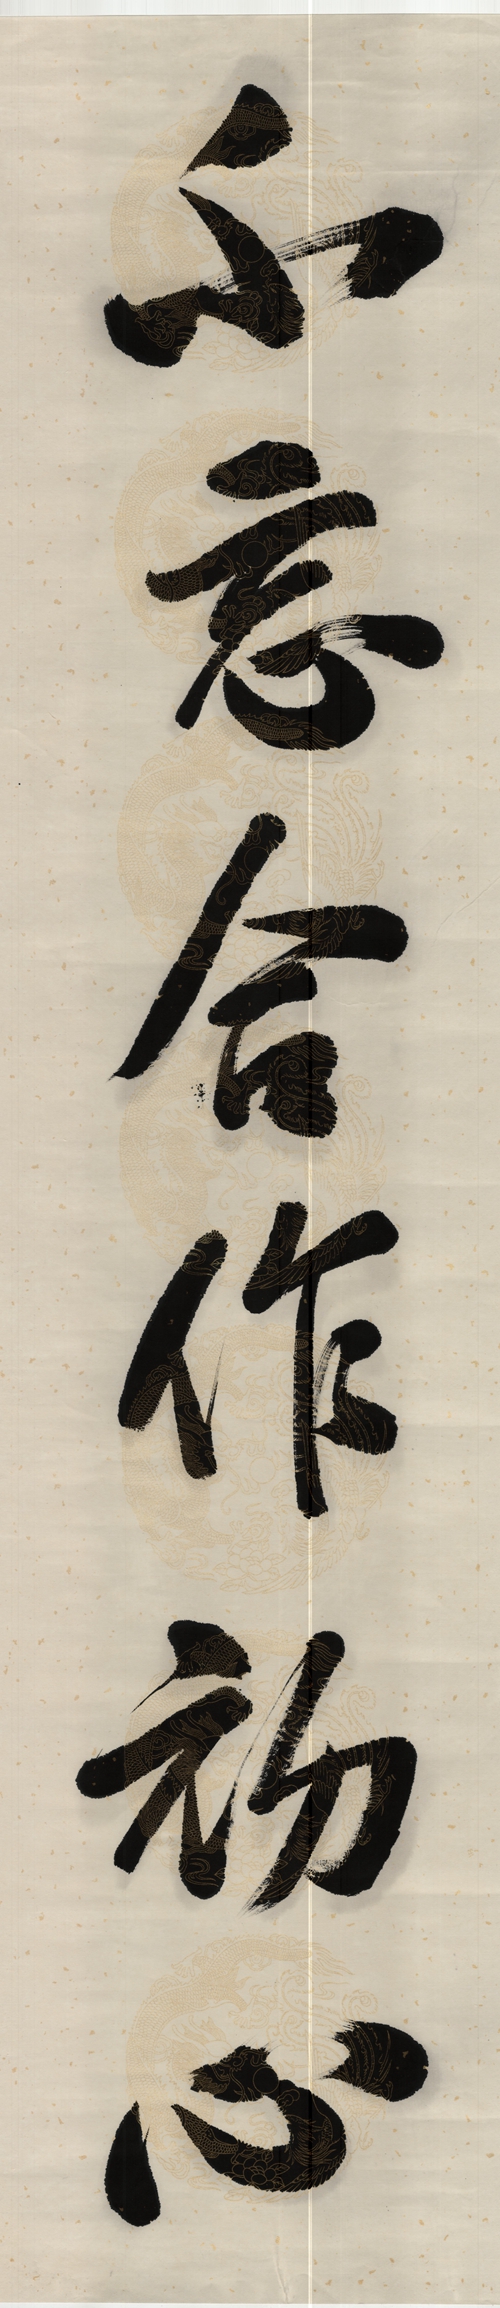 不忘合作初心